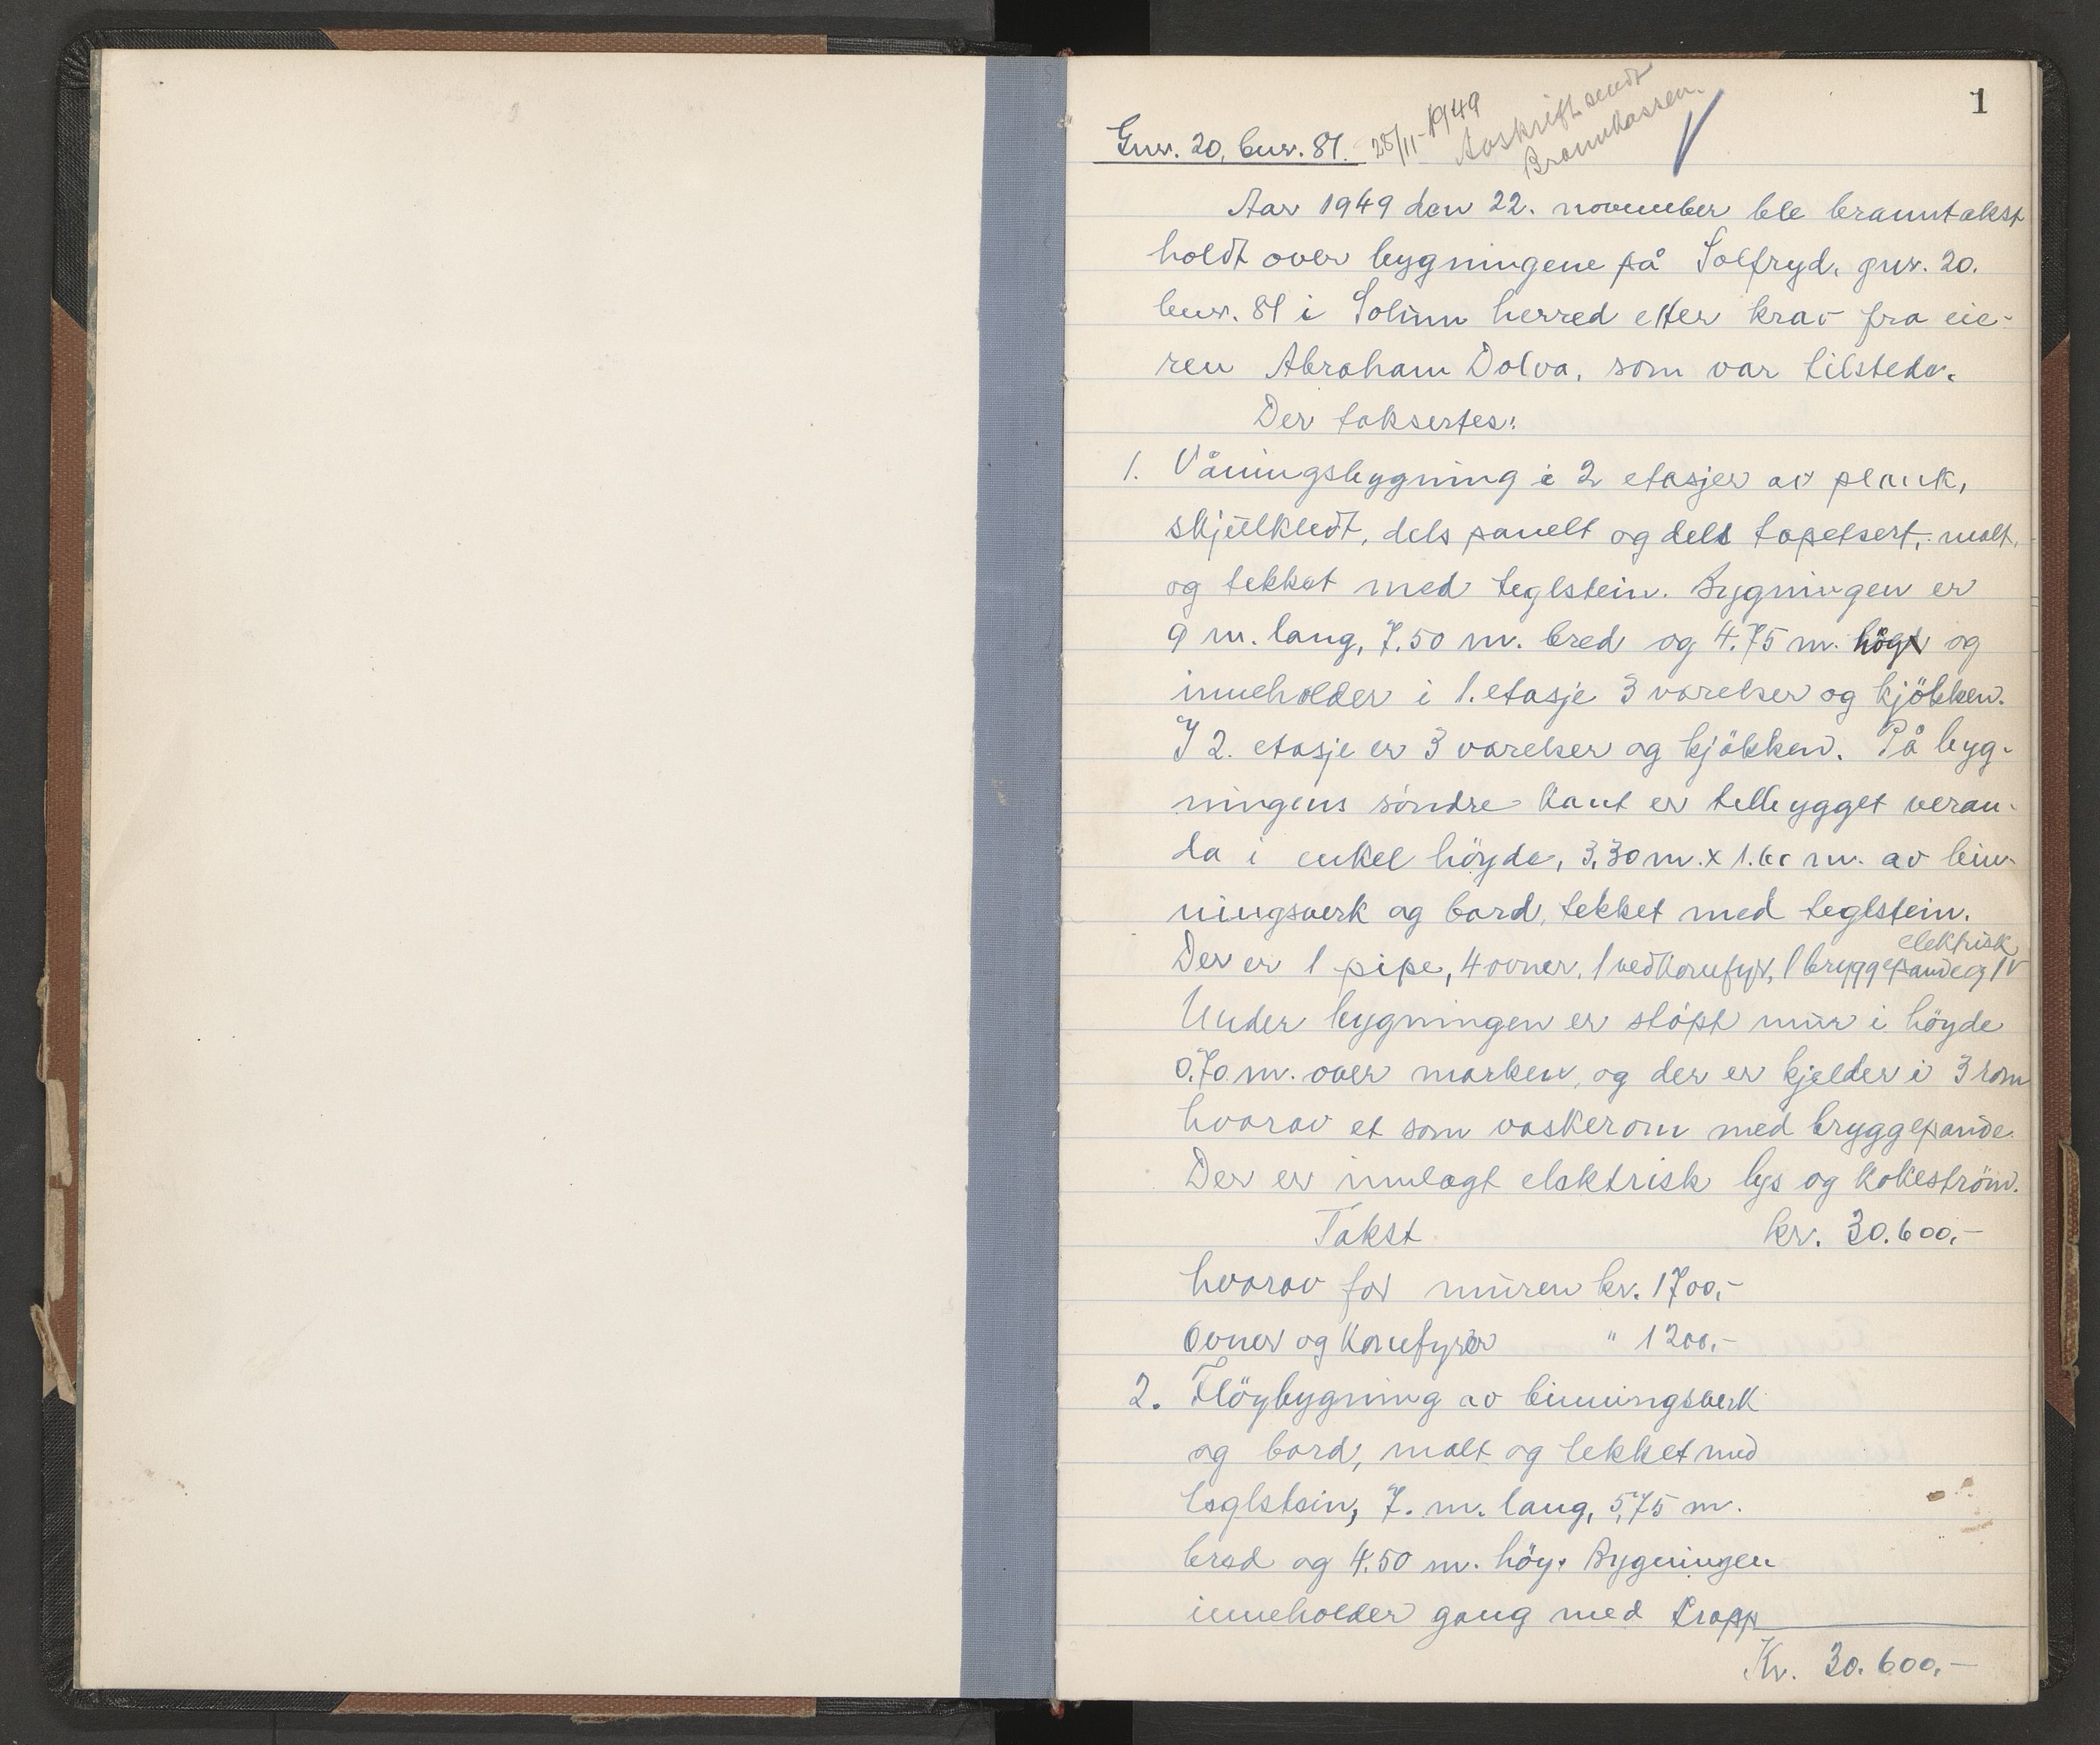 1
Gnr. 20, bnr. 81. 28/11-1949
Avskrift sendt
Brannkassen.
Aar 1949 den 22. november ble branntakst
holdt over bygningene på Solfryd, gnr. 20.
bnr. 81 i Solum herred etter krav fra eie-
ren Abraham Dolva, som var tilstede.
Der taksertes:
1. Våningsbygning i 2 etasjer av plank,
skjulkledt, dels panelt og dels tapetsert, malt,
og tekket med teglstein. Bygningen er
9 m. lang, 7.50 m. bred og 4.75 m. høg og
inneholder i 1. etasje 3 værelser og kjökken.
I 2. etasje er 3 værelser og kjökken. På byg-
ningens söndre kant er tilbygget veran-
da i enkel höyde, 3,30 m. x 1.60 m. av bin-
ningsverk og bord, tekket med teglstein.
Der er 1 pipe, 4 ovner, 1 vedkomfyr, 1 bryggepande og 1 elektrisk
Under bygningen er stöpt mur i höyde
0.70 m. over marken, og der er kjelder i 3 rom
hvorav et som vaskerom med bryggepande.
Der er innlagt elektrisk lys og kokeström.
Takst kr. 30.600,-
hvorav for muren kr. 1700,-
Ovner og komfyrer " 1200,-
2. Flöybygning av binningsverk
og bord, malt og tekket med
teglstein, 7. m. lang, 5,75 m.
bred og 4.50 m. höy. Bygningen
inneholder gang med trapp
Kr. 30.600,-